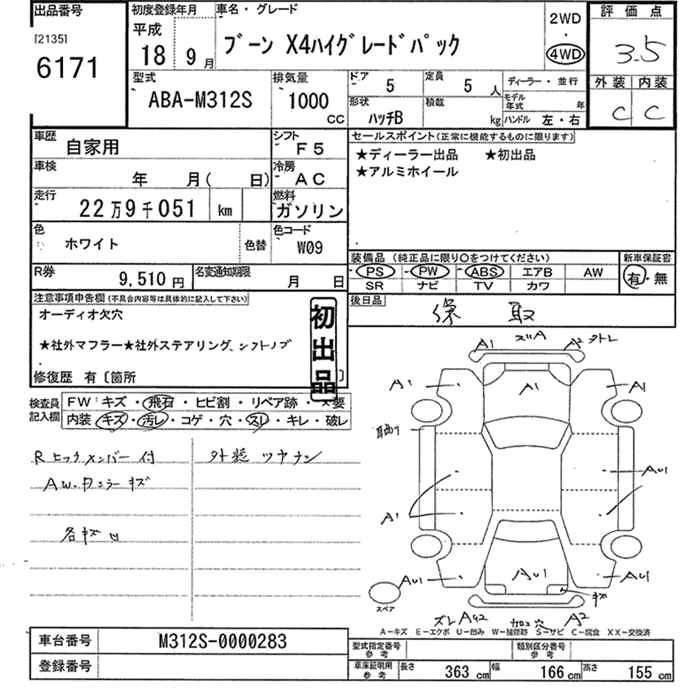 出品番号 初度登録年月 車名・グレード 評価点
[2135] 6171
平成 18 9月 ブーン X4ハイグレードパック 2WD 4WD 3.5
型式 排気量 ドア 5 定員 5人 ディーラー・並行 外装 内装
ABA-M312S 1000 CC 形状 ハッチB 積載 kg モデル年式 年 ハンドル 左・右 C C
車歴 自家用 シフト F5 セールスポイント(正常に機能するものに限ります)
車検 年 月( 日) 冷房 AC ★ディーラー出品 ★初出品
★アルミホイール
走行 22万9千051 km 燃料 ガソリン
色 ホワイト 色替 色コード W09
装備品 (純正品に限り○をつけてください) 新車保証書
PS PW ABS エアB AW 有・無
SR ナビ TV カワ
R券 9,510円 名変通知期限 月 日
後日品 保 取
注意事項申告欄(不具合内容等は具体的に記入して下さい)
オーディオ欠穴
★社外マフラー★社外ステアリング、シフトノブ
初出品
修復歴 有〔箇所 〕
検査員記入欄 FW キズ・飛石・ヒビ割・リペア跡・X要
内装 キズ・汚レ・コゲ・穴・スレ・キレ・破レ
外装 ツヤナシ
各キズ凹
A1 ズレA A2
A1 A1 A1
AU1
A1
AU1 AU1 AU1
キズ
スペア
ズレ 穴
A-キズ E-エクボ U-凹み W-補修跡 S-サビ C-腐食 XX-交換済
車台番号 M312S-0000283
登録番号
型式指定番号 参考 類別区分番号 参考
車庫証明用 参考 長さ 363 cm 幅 166 cm 高さ 155 cm